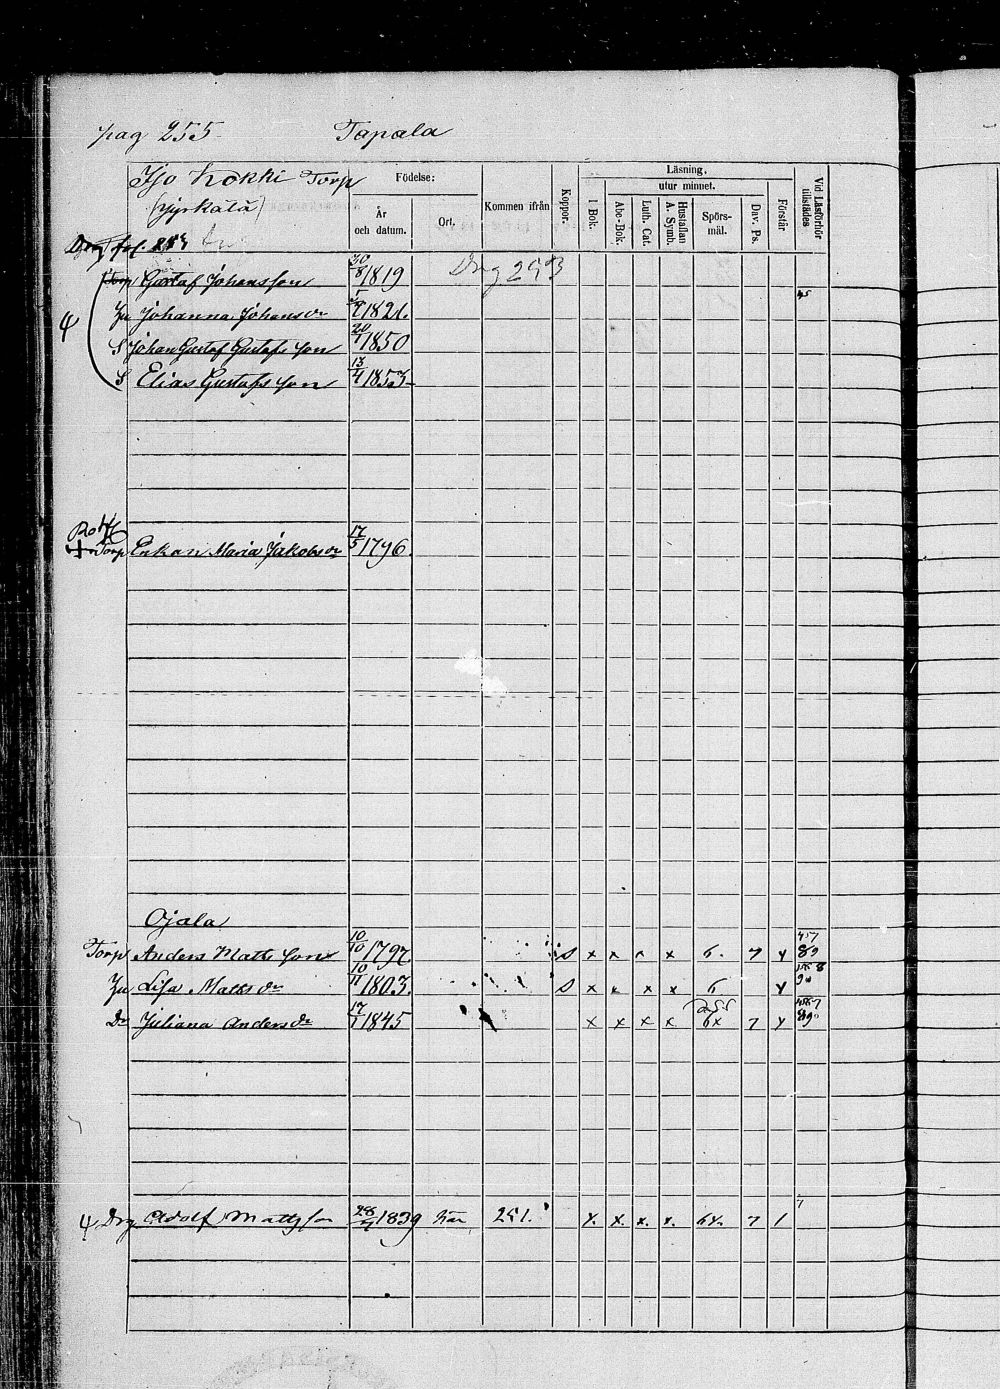 pag 255 Tapala
Iso Kokki Torp
(Pyykälä)
Födelse:
År och datum.
Ort.
Kommen ifrån
Koppor.
Läsning.
utur minnet.
I Bok.
Abc-Bok.
Luth. Cat.
Hustaflan A. Symb.
Spörs-mål.
Dav. Ps.
Förstår
Vid Läsförhör tillstädes
fol. 253
Torp Gustaf Johansson 30/8 1819 Drg 253
Hu Johanna Johans dr 1821.
S Johan Gustaf Gustafs son 20/1 1850
S Elias Gustafs son 13/4 1853
4
Torp Enkan Maria Jakobs dr 17/5 1796.
Ojala
Torp Anders Matts son 10/10 1797. s x x x x 6. 7 x
Hu Lisa Matts dr 10/11 1803. s x x x x 6 x
Dr Juliana Anders dr 17/1 1845 x x x x 255 6x 7 x
4 Drg Adolf Mattsson 28/4 1839 här 251. x. x. x. x. 6x. 7 1